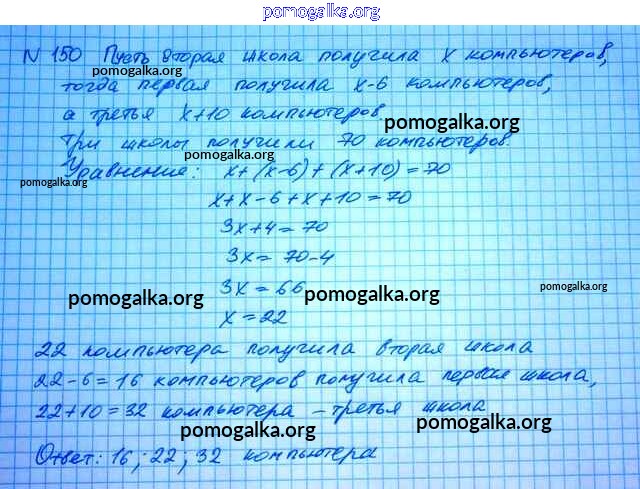 pomogalka.org
N 150 Пусть вторая школа получила x компьютеров,
pomogalka.org
тогда первая получила x-6 компьютеров,
а третья x+10 компьютеров.
pomogalka.org
Три школы получили 70 компьютеров.
pomogalka.org
Уравнение: x+(x-6)+(x+10)=70
pomogalka.org
x+x-6+x+10=70
3x+4=70
3x=70-4
3x=66
pomogalka.org
pomogalka.org
pomogalka.org
x=22
22 компьютера получила вторая школа
22-6=16 компьютеров получила первая школа,
22+10=32 компьютера - третья школа
pomogalka.org
pomogalka.org
Ответ: 16; 22; 32 компьютера